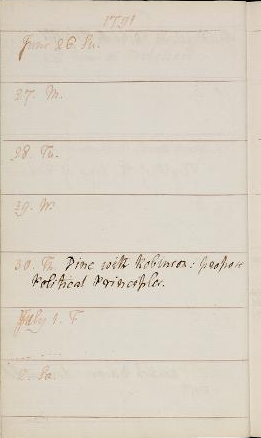 1791
June 26. Su.
27. M.
28. Tu.
29. W.
30. Th. Dine with Robinson: propose
Political Principles.
July 1. F
2. Sa.